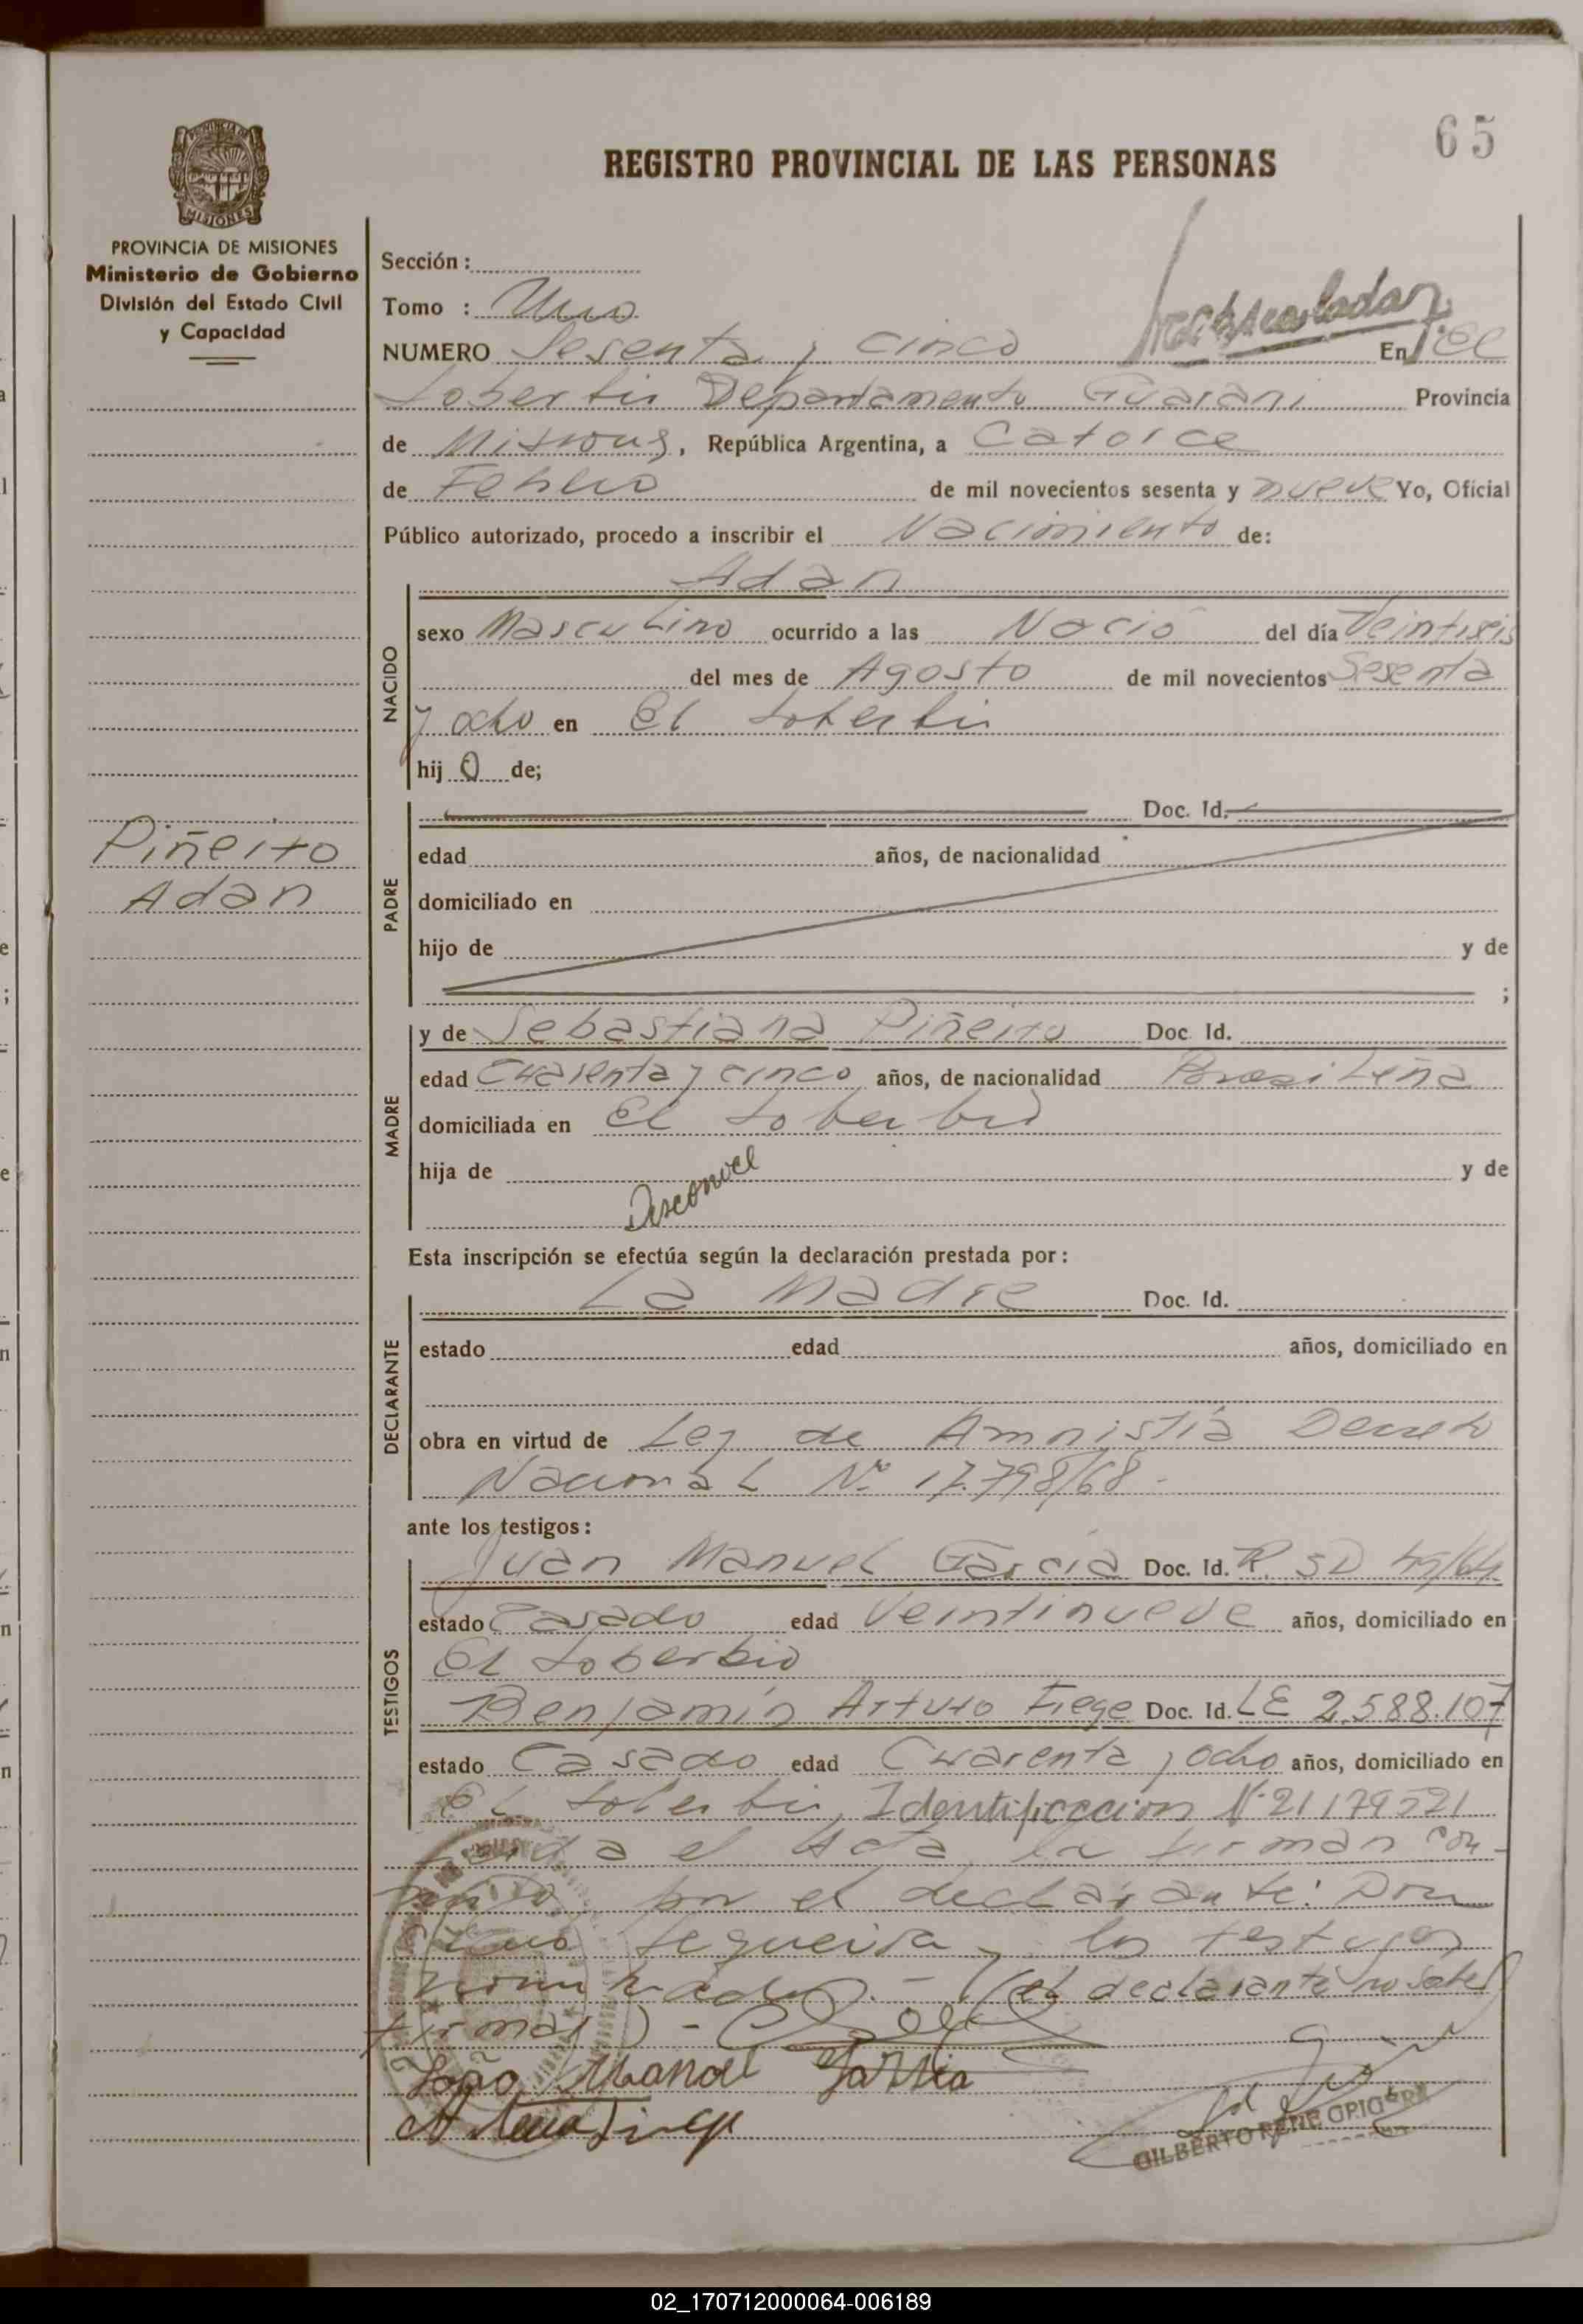 65
REGISTRO PROVINCIAL DE LAS PERSONAS
PROVINCIA DE
MISIONES
PROVINCIA DE MISIONES
Ministerio de Gobierno
División del Estado Civil
y Capacidad
Sección :
Tomo : Uno
NUMERO Sesenta y cinco En El
Soberbio Departamento Guarani Provincia
de Misiones, República Argentina, a Catorce
de Febrero de mil novecientos sesenta y nueve Yo, Oficial
Público autorizado, procedo a inscribir el Nacimiento de:
NACIDO
Adan
sexo Masculino ocurrido a las Nació del día Veintiseis
del mes de Agosto de mil novecientos Sesenta
y ocho en El Soberbio
hij o de;
Piñeiro
Adan
PADRE
Doc. Id.
edad años, de nacionalidad
domiciliado en
hijo de y de
;
MADRE
y de Sebastiana Piñeiro Doc. Id.
edad Cuarenta y cinco años, de nacionalidad Brasileña
domiciliada en El Soberbio
hija de Desconoce y de
Esta inscripción se efectúa según la declaración prestada por :
DECLARANTE
La Madre Doc. Id.
estado edad años, domiciliado en
obra en virtud de Ley de Amnistía Decreto
Nacional Nº 17.798/68.-
ante los testigos :
TESTIGOS
Juan Manuel García Doc. Id. R. SD 45/64
estado Casado edad Veintinueve años, domiciliado en
El Soberbio
Benjamín Arturo Fiege Doc. Id. LE 2.588.107
estado Casado edad Cuarenta y ocho años, domiciliado en
El Soberbio, Identificacion Nº 21179521
el Acta, la firman con-
por el declarante: Don
Sequeira y los testigos
nombrados.- (el declarante no sabe
firmar) -
Manoel Garsia
GILBERTO RENE
02_170712000064-006189